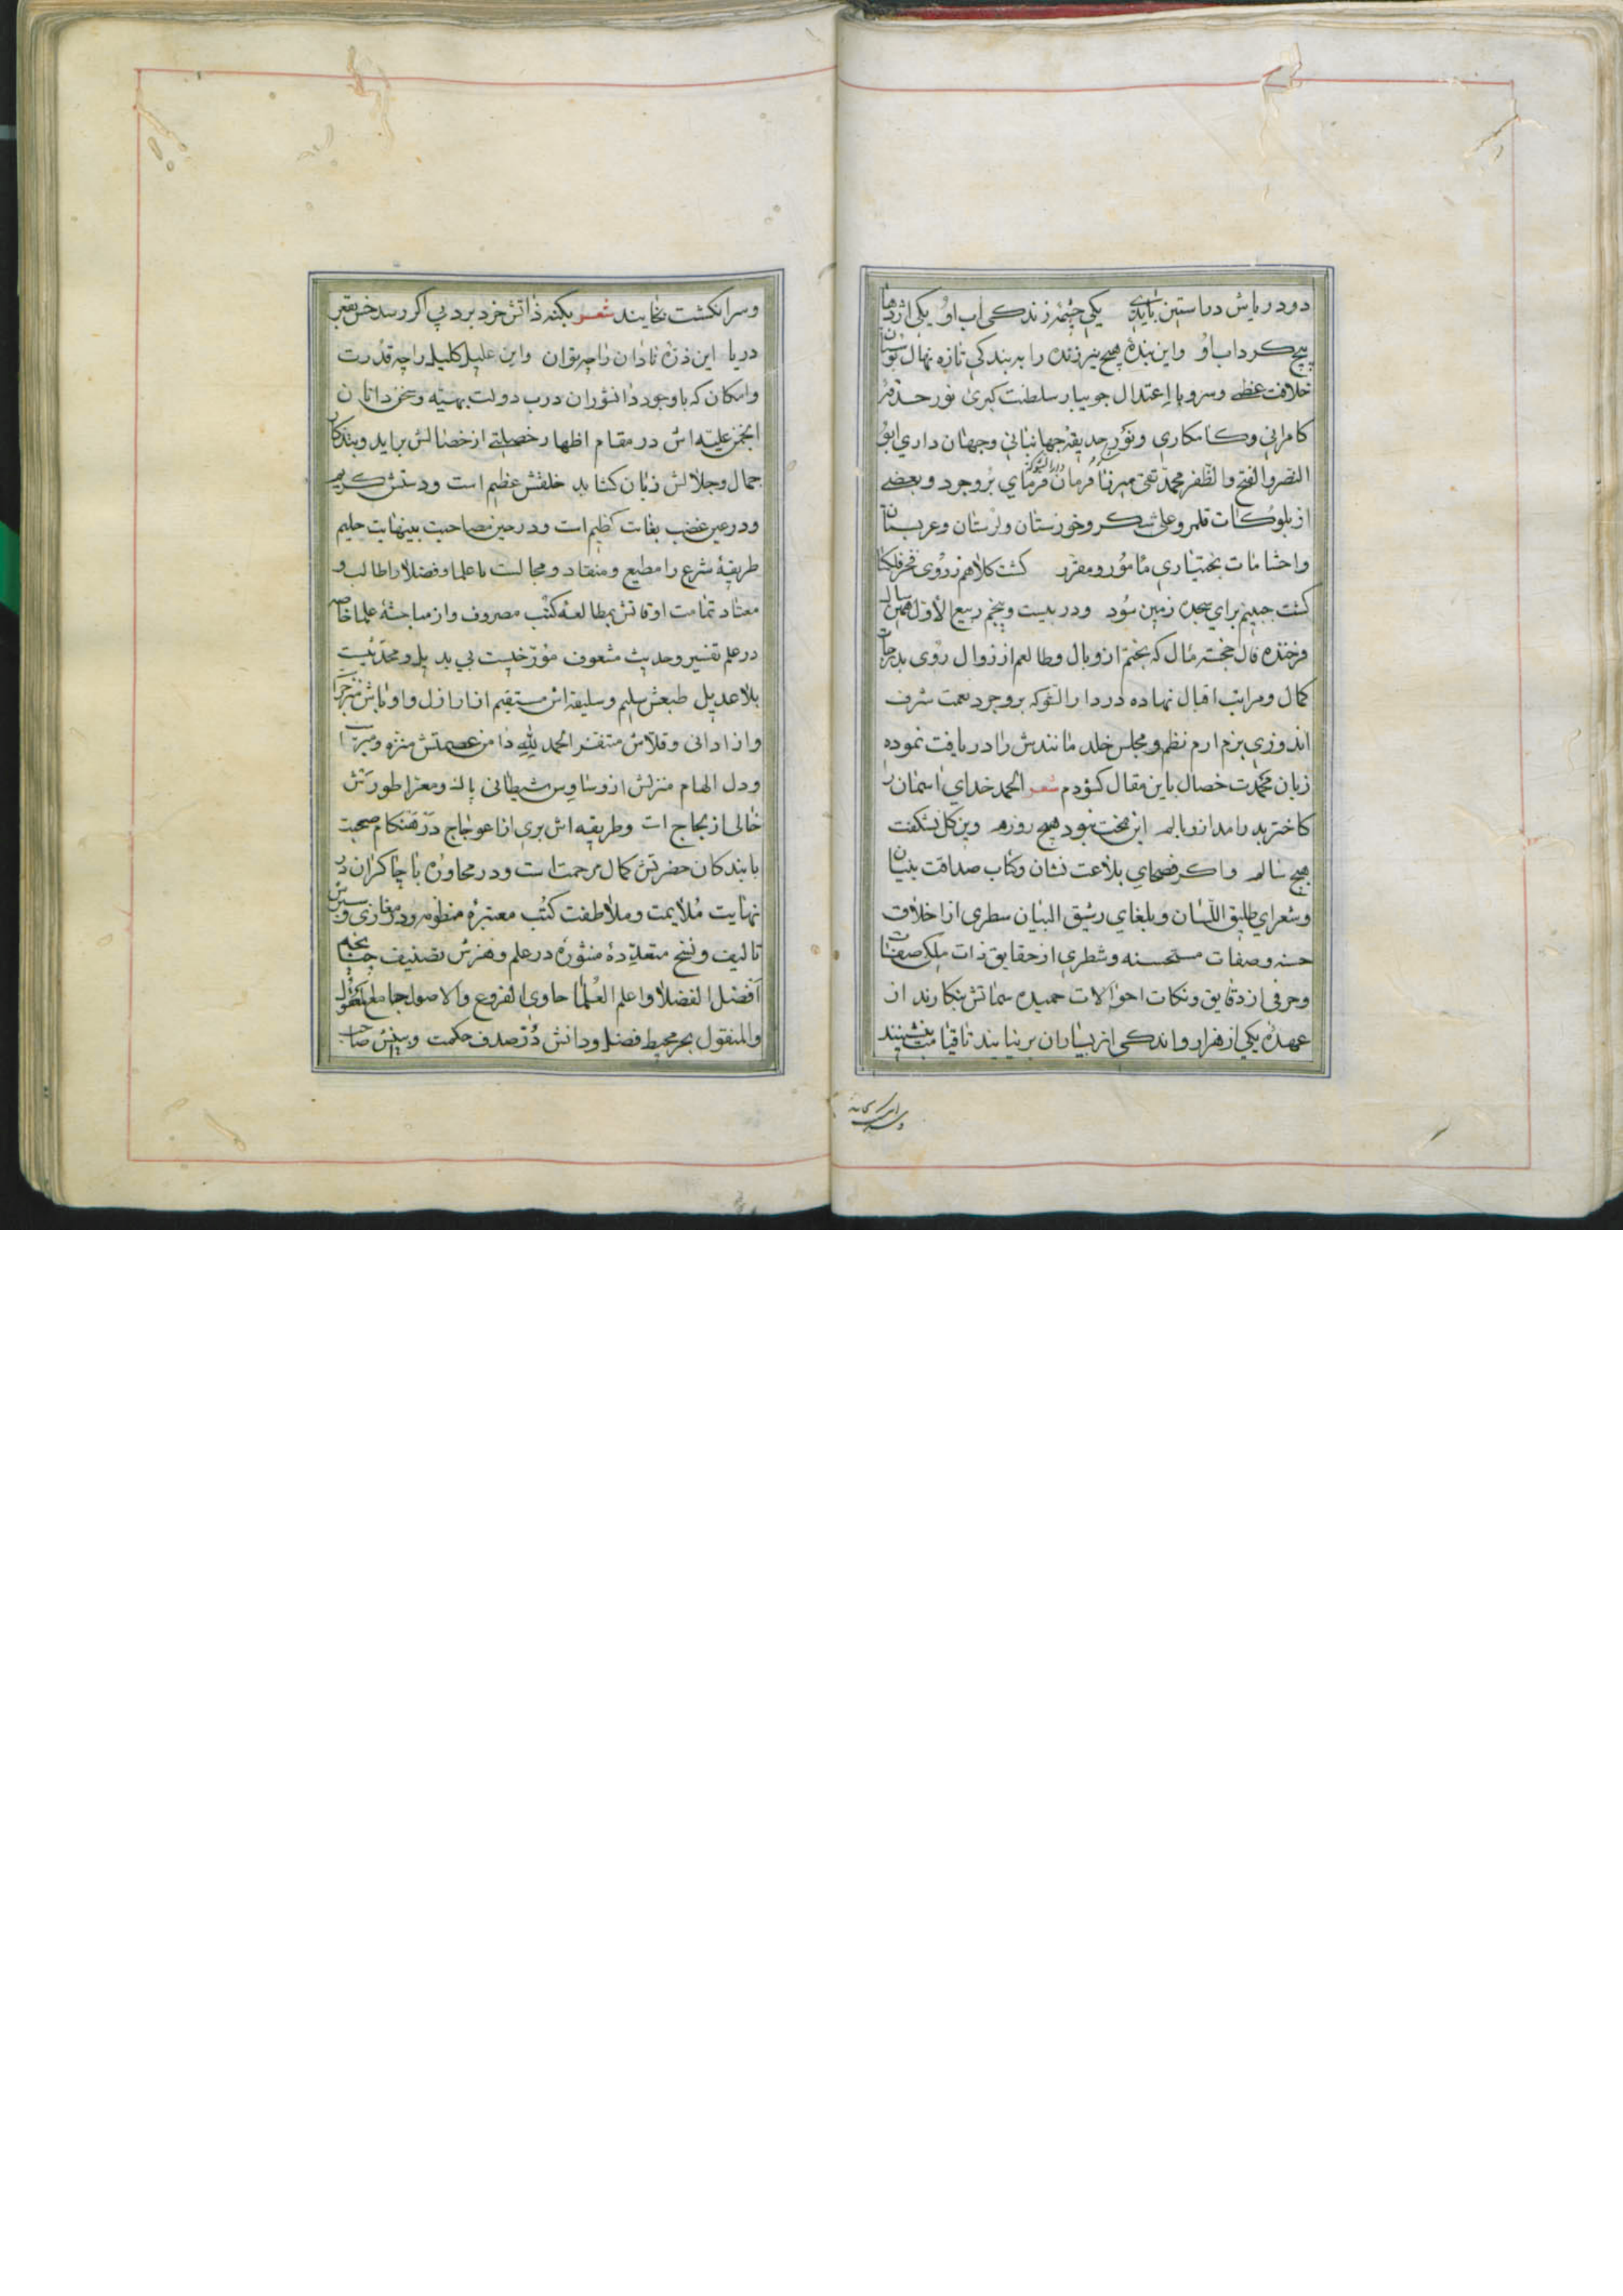 دو دریاش در استین یکی چشمهٔ زندکی اب او یکی اژدها
پیچ کرداب او واین بندهٔ هیچ نیرزنده را به بندکی تازه نهال بوستان
خلافت عظمی وسرو بااعتدال جویبار سلطنت کبری نور حدقهٔ
کامرانی وکامکاری ونور حدیقهٔ جهانبانی وجهان داری ابو
النصر والفتح والظفر محمّد تقی میرزا فرمان فرمای بروجرد وبعضے
از بلوکات قلمرو علی شکر وخوزستان ولرستان وعربستان
واحشامات بختیاری مامور ومقرّر کشت کلاهم زروی فخر فلکسا
کشت جبینم برای سجده زمین سود ودر بیست وپنجم ربیع الاوّل همین سال
فرخنده فال خجسته مال که بختم از وبال وطالعم از زوال روی بدرجات
کمال ومراتب اقبال نهاده در دار الشوکه بروجرد بعمت شرف
اندوزی بزم ارم نظم ومجلس خلد مانندش را دریافت نموده
زبان محمدت خصال باین مقال کشودم شعر الحمد خدای اسمان را
کاختر بدر امد از وبالم این بخت نبود هیچ روزم وین کل نشکفت
هیچ سالم واکر فصحای بلاغت نشان وکتاب صداقت بنیان
وشعرای طلیق اللّسان وبلغای رشیق البیان سطری از اخلاق
حسنه وصفات مستحسنه وشطری از حقایق ذات ملکی صفات
وحرفی از دقایق ونکات احوالات حمیده سماتش بنکارند از
عهدهٔ یکی از هزار واندکی از بسیاران برنیایند تا قیامت بنشینند
وسر انکشت
وسر انکشت بخایند شعر بکنه ذاتش خرد برد پی اکر رسد خس بقعر
دریا این ذرّه نادان را چه توان واین علیل کلیل را چه قدرت
وامکان که باوجود دانشوران درب دولت بهیّه وسخن دانان
انجمن علیّه اش در مقام اظهار خصیلتے از خصالش براید وبتذکار
جمال وجلالش زبان کشاید خلقش عظیم است ودستش کریم
ودر عین غضب بغایت کظیم است ودر حین مصاحبت بینهایت حلیم
طریقهٔ شرع را مطیع ومنقاد ومجالست با علما وفضلا را طالب و
معتاد تمامت اوقاتش بمطالعه کتب مصروف واز مباحثهٔ علما خاصه
در علم تفسیر وحدیث مشعوف مورّخیست بی بدیل ومحدّثیست
بلا عدیل طبعش سلیم وسلیقه اش مستقیم از اراذل واوباش منزجر
واز ادانی وقلّاش متنفر الحمد للّه دامن عصمتش منزّه ومبرّا
ودل الهام منزلش از وساوس شیطانی پاک ومعرّا طورتش
خالی از لجاج است وطریقه اش بری از اعوجاج در هنکام صحبت
با بندکان حضرتش کمال مرحمت است ودر محاوره با چاکران در
نهایت ملایمت وملاطفت کتب معتبرهٔ منظومه ودر مغازی وسیر
تالیف ونسخ متعدّدهٔ منثوره در علم وهنرش تصنیف جناب
افضل الفضلا واعلم العلما حاوی الفروع والاصول جامع المعقول
والمنقول بحر محیط فضل ودانش درّ صدف حکمت وبینش صاحب